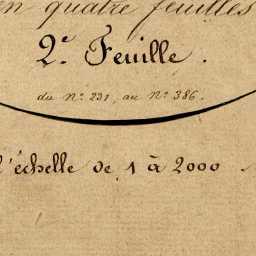 en quatre feuilles
2.e Feuille.
du N.o 231, au N.o 386.
l'échelle de 1 à 2000